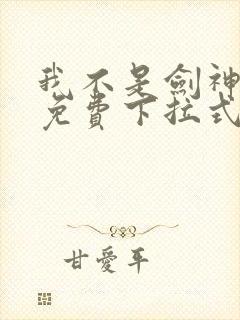 我不是劍神
免費下拉式
甘愛平